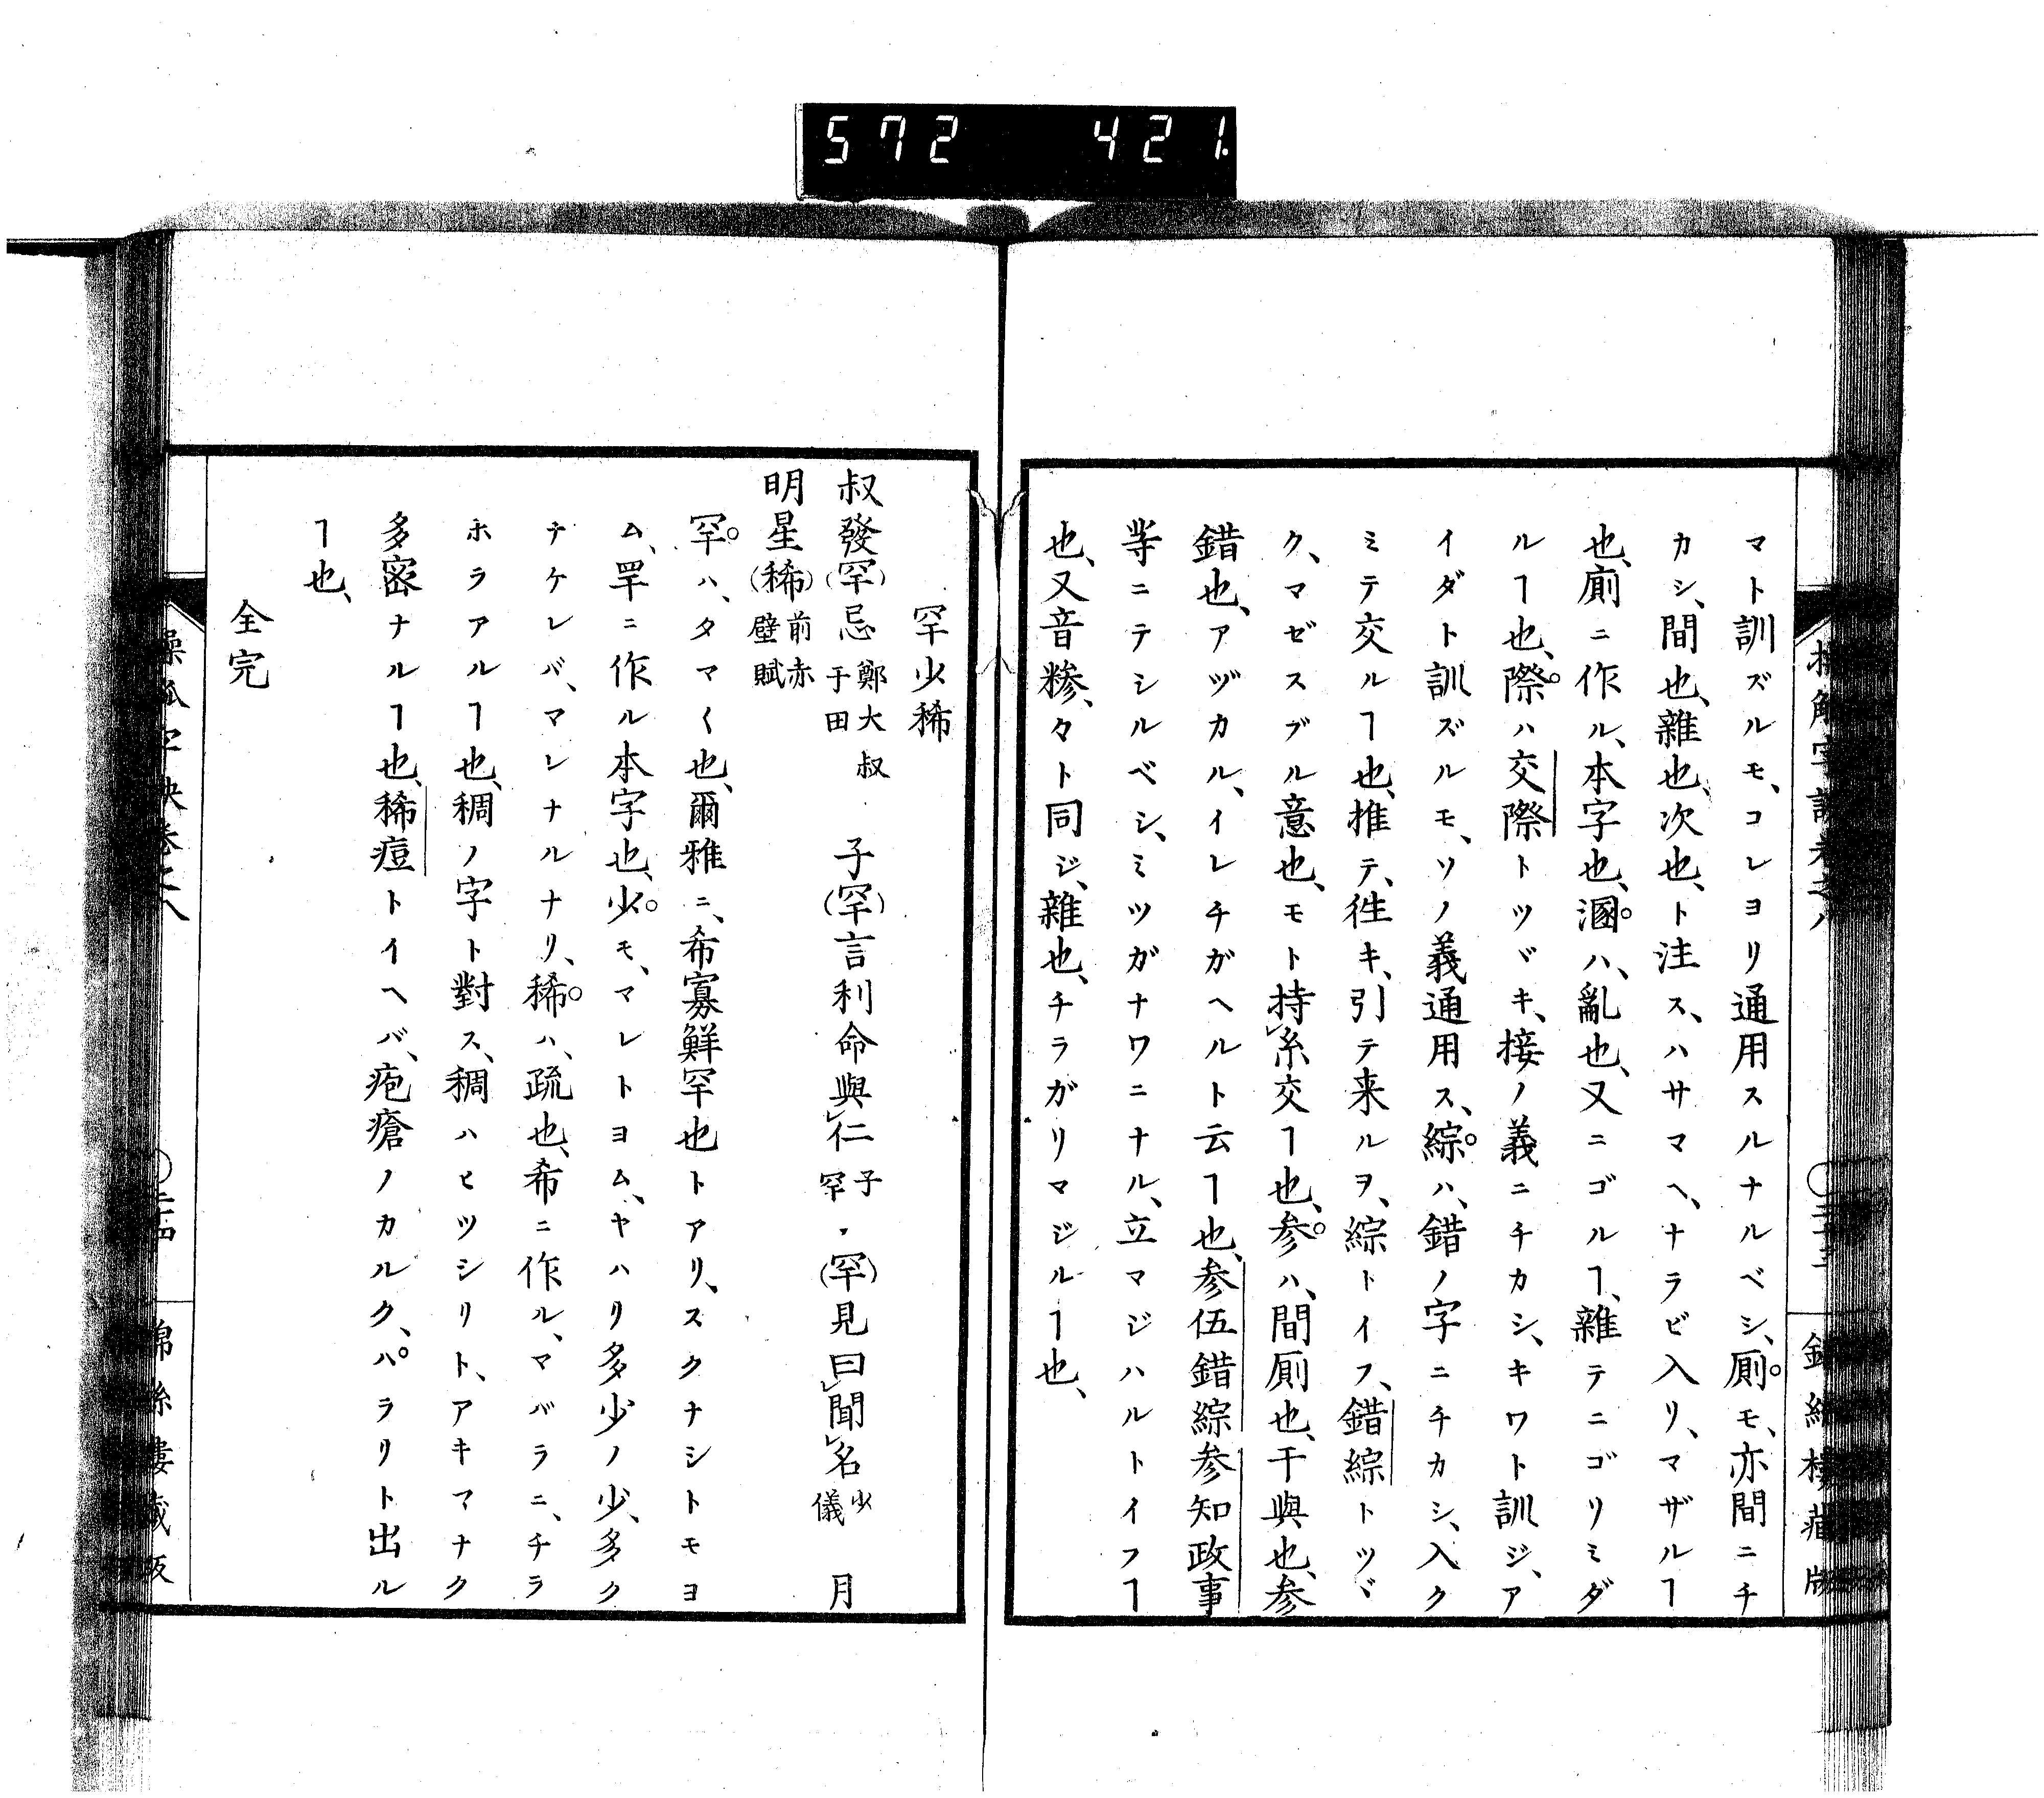 572 421.
マト訓ズルモ、コレヨリ通用スルナルベシ、厠モ、亦間ニチ
カシ、間也、雜也、次也、ト注ス、ハサマヘ、ナラビ入リ、マザルヿ
也、廁ニ作ル、本字也、溷ハ、亂也、又ニゴルヿ、雜テニゴリミダ
ルヿ也、際ハ交際トツヾキ、接ノ義ニチカシ、キワト訓ジ、ア
イダト訓ズルモ、ソノ義通用ス、綜ハ、錯ノ字ニチカシ、入ク
ミテ交ルヿ也、推テ、徃キ、引テ来ルヲ、綜トイフ、錯綜トツヾ
ク、マゼスブル意也、モト持糸交ヿ也、参ハ、間厠也、干與也、参
錯也、アヅカル、イレチガヘルト云ヿ也、参伍錯綜参知政事
等ニテシルベシ、ミツガナワニナル、立マジハルトイフヿ
也、又音糝、々ト同ジ、雜也、チラガリマジルヿ也、
罕少稀
叔發(罕)忌 鄭大叔于田 子(罕)言利命與仁 子罕 (罕)見曰聞名 少儀 月
明星(稀) 前赤壁賦
罕ハ、タマ〱也、爾雅ニ、希寡鮮罕也トアリ、スクナシトモヨ
ム、罕ニ作ル本字也、少モ、マレトヨム、ヤハリ多少ノ少、多ク
ナケレバ、マレナルナリ、稀ハ、疏也、希ニ作ル、マバラニ、チラ
ホラアルヿ也、稠ノ字ト對ス、稠ハヒツシリト、アキマナク
多密ナルヿ也、稀痘トイヘバ、疱瘡ノカルク、パラリト出ル
ヿ也、
全完